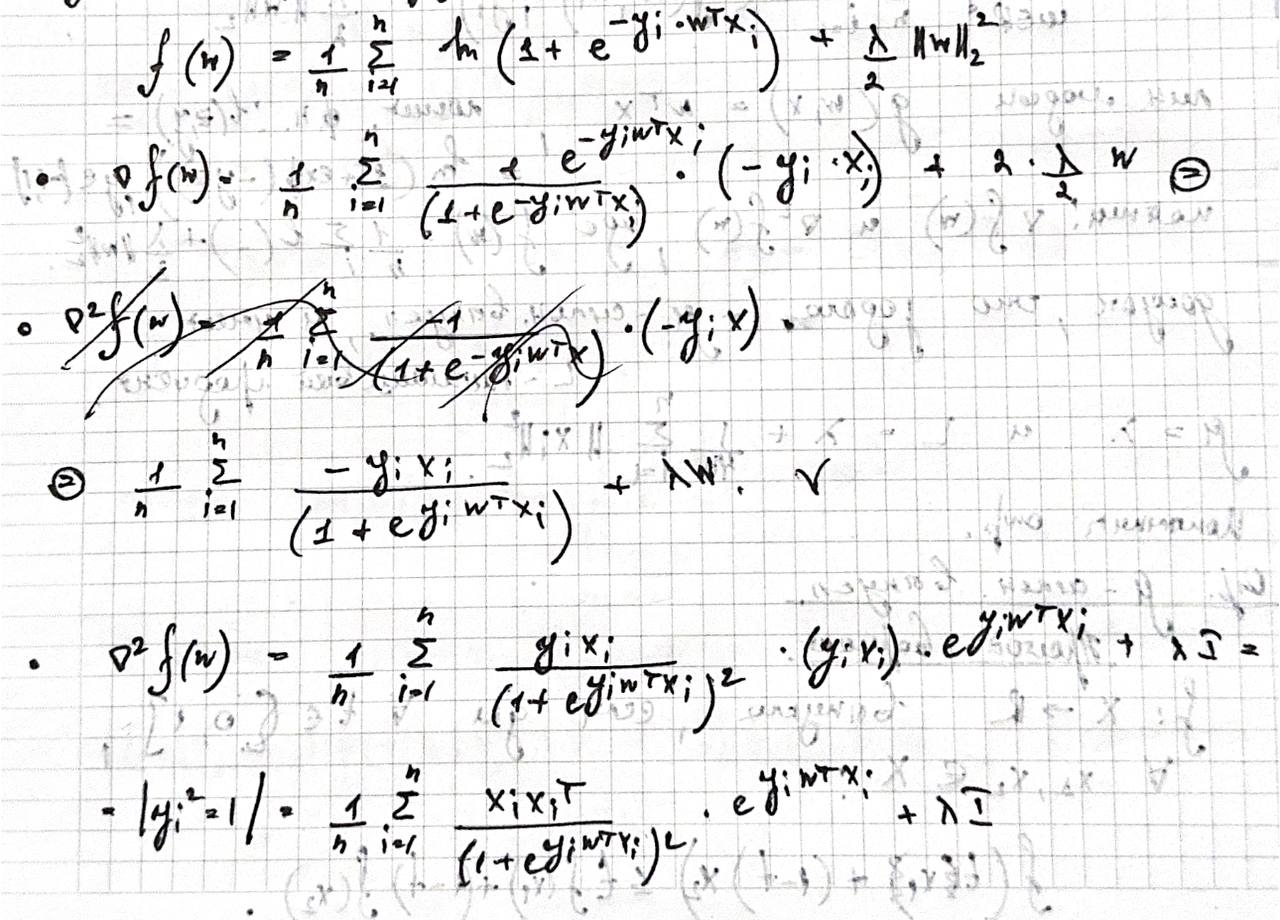 f(w) = 1/n Σ_{i=1}^{n} ln (1 + e^{-y_i · w^T x_i}) + λ/2 ||w||_2^2
• ∇f(w) = 1/n Σ_{i=1}^{n} (1 e^{-y_i w^T x_i})/(1 + e^{-y_i w^T x_i}) · (-y_i · x_i) + 2 · λ/2 w ⊜
• ∇²f(w) = 1/n Σ_{i=1}^{n} (-1)/(1 + e^{-y_i w^T x}) · (-y_i x) ·
⊜ 1/n Σ_{i=1}^{n} (-y_i x_i)/(1 + e^{y_i w^T x_i}) + λw. √
• ∇²f(w) = 1/n Σ_{i=1}^{n} (y_i x_i)/(1 + e^{y_i w^T x_i})² · (y_i x_i) · e^{y_i w^T x_i} + λI =
= |y_i² = 1| = 1/n Σ_{i=1}^{n} (x_i x_i^T)/(1 + e^{y_i w^T x_i})² · e^{y_i w^T x_i} + λI